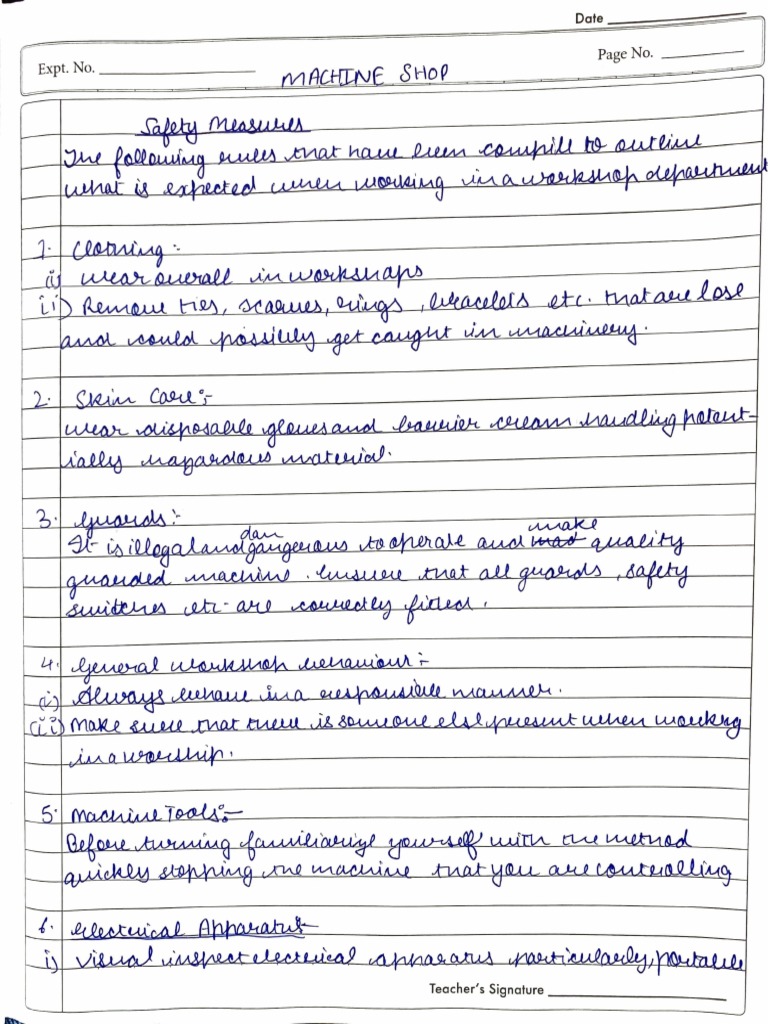 Date
Expt. No.
Page No.
MACHINE SHOP
Safety Measures
The following rules that have been compill to outline
what is expected when working in a workshop department
1. Clothing :
(i) wear overall in workshops
(ii) Remove ties, scarves, rings , bracelets etc. that are lose
and could possibly get caught in machinery.
2. Skin Care :-
wear disposable gloves and barrier cream handling potent-
ially hazardous material.
3. Guards :-
dan make
It is illegal and gangerous to operate and quality
guarded machine . Ensure that all guards , safety
switches etc - are correctly fitted .
4. General workshop behaviour :-
(i) Always behave in a responsible manner .
(ii) Make sure that there is someone else present when working
in a worship .
5. Machine Tools :-
Before turning familiarize yourself with the method
quickly stopping the machine that you are controlling
6. Electrical Apparatus -
i) Visual inspect electrical apparatus particularly, portable
Teacher's Signature